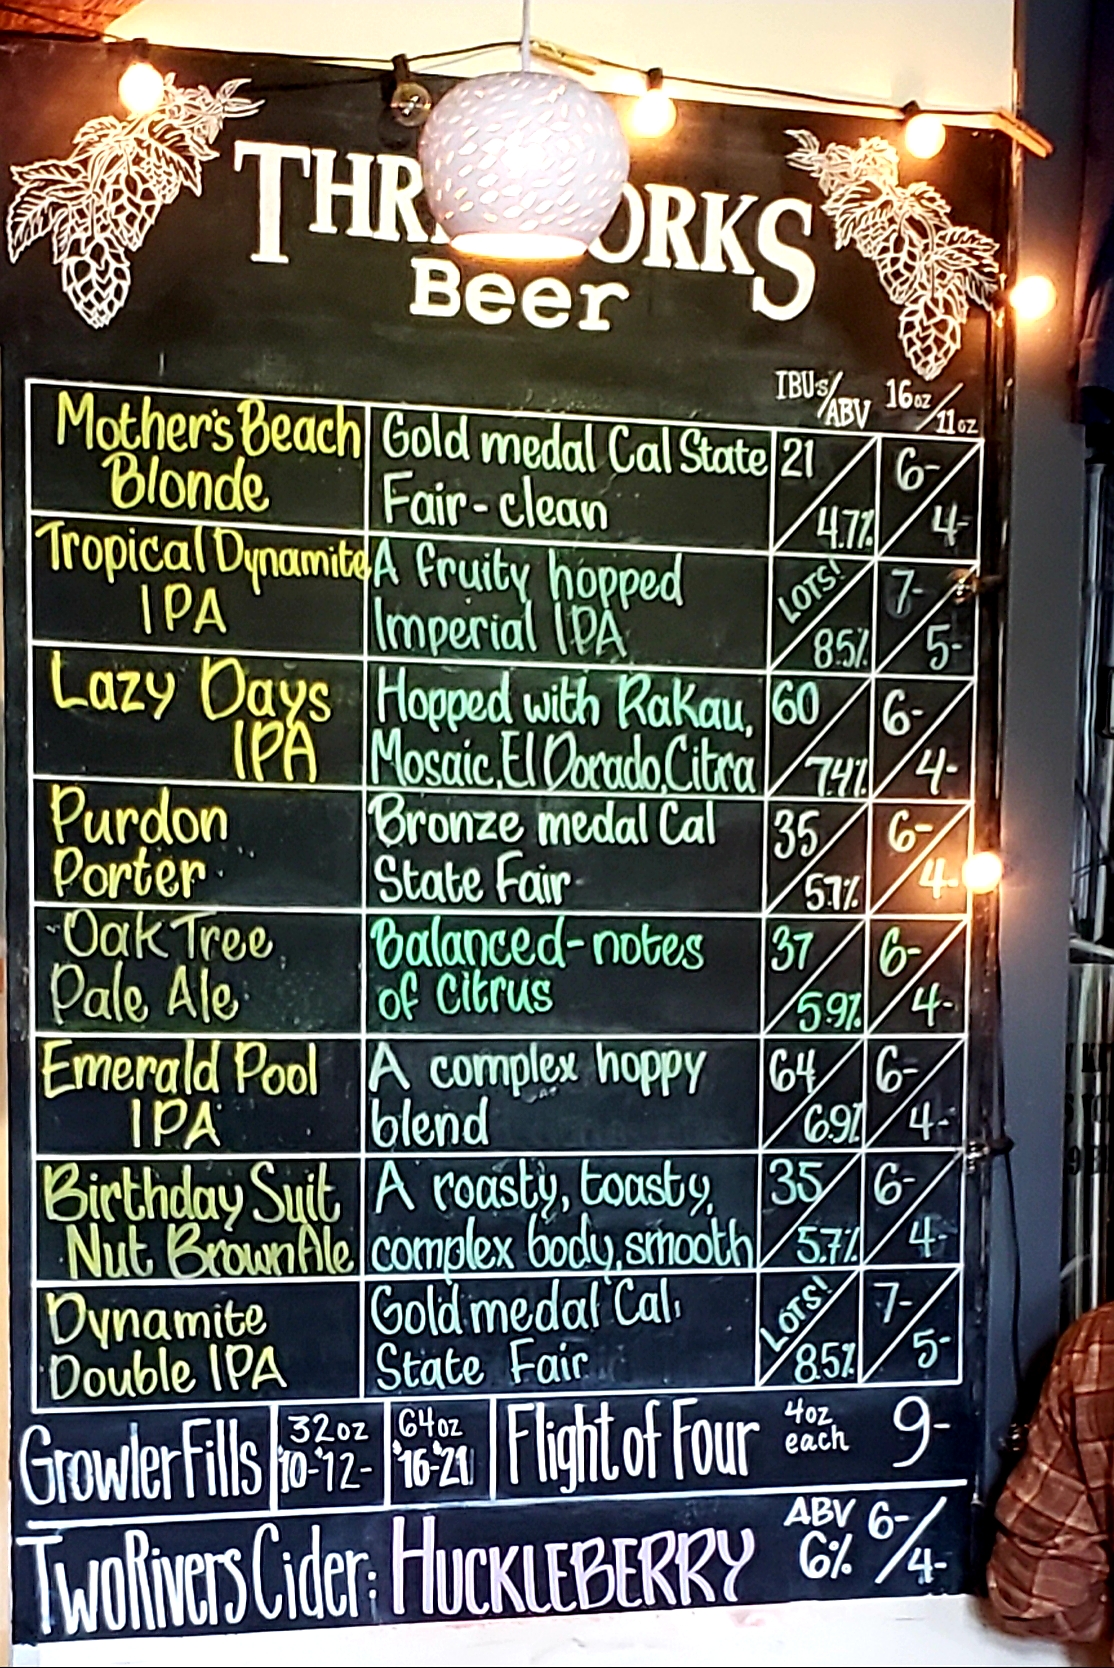 Beer
IBUs/ABV 16oz/11oz
Mother's Beach
Blonde
Gold medal Cal State
Fair - clean
21
4.7%
6-
4-
Tropical Dynamite
IPA
A fruity hopped
Imperial IPA
LOTS!
8.5%
7-
5-
Lazy Days
IPA
Hopped with Rakau,
Mosaic, El Dorado, Citra
60
7.4%
6-
4-
Purdon
Porter
Bronze medal Cal
State Fair
35
5.7%
6-
4-
Oak Tree
Pale Ale
Balanced-notes
of citrus
37
5.9%
6-
4-
Emerald Pool
IPA
A complex hoppy
blend
64
6.9%
6-
4-
Birthday Suit
Nut Brown Ale
A roasty, toasty,
complex body, smooth
35
5.7%
6-
4-
Dynamite
Double IPA
Gold medal Cal
State Fair
LOTS!
8.5%
7-
5-
Growler Fills
32oz
10-12-
64oz
16-21
Flight of Four
4oz
each
9-
Two Rivers Cider: HUCKLEBERRY
ABV
6%
6-/4-